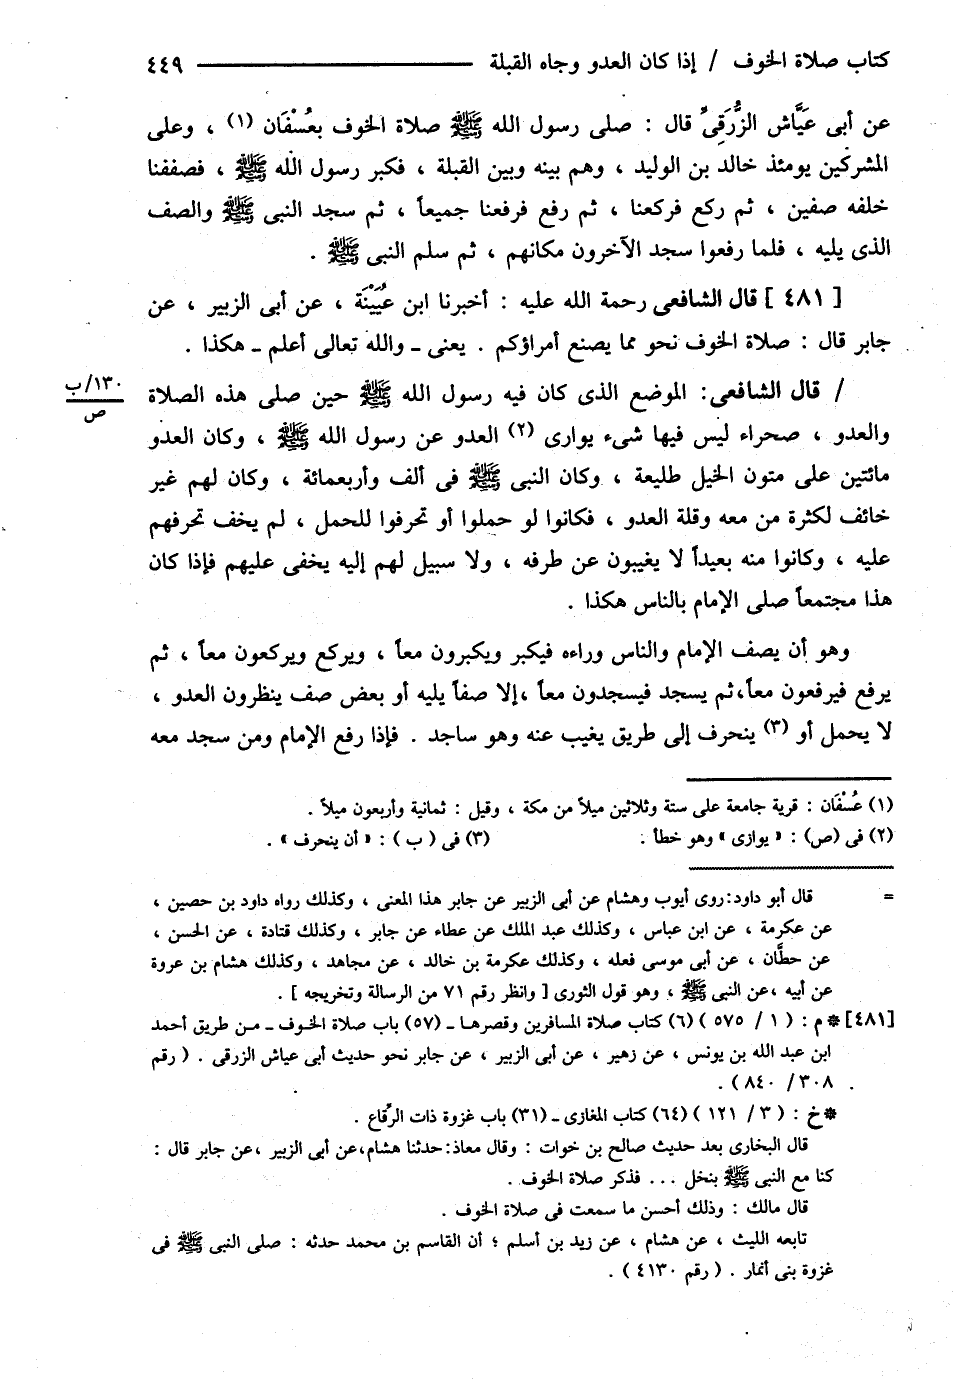 كتاب صلاة الخوف / إذا كان العدو وجاه القبلة ٤٤٩
عن أبى عَيَّاش الزُّرَقِىِّ قال : صلى رسول الله ﷺ صلاة الخوف بعُسْفَان (١) ، وعلى
المشركين يومئذ خالد بن الوليد ، وهم بينه وبين القبلة ، فكبر رسول الله ﷺ ، فصففنا
خلفه صفين ، ثم ركع فركعنا ، ثم رفع فرفعنا جميعاً ، ثم سجد النبى ﷺ والصف
الذى يليه ، فلما رفعوا سجد الآخرون مكانهم ، ثم سلم النبى ﷺ .
[ ٤٨١ ] قال الشافعى رحمة الله عليه : أخبرنا ابن عُيَيْنَة ، عن أبى الزبير ، عن
جابر قال : صلاة الخوف نحو مما يصنع أمراؤكم . يعنى ـ والله تعالى أعلم ـ هكذا .
/ قال الشافعى : الموضع الذى كان فيه رسول الله ﷺ حين صلى هذه الصلاة
١٣٠/ب
ص
والعدو ، صحراء ليس فيها شىء يوارى (٢) العدو عن رسول الله ﷺ ، وكان العدو
مائتين على متون الخيل طليعة ، وكان النبى ﷺ فى ألف وأربعمائة ، وكان لهم غير
خائف لكثرة من معه وقلة العدو ، فكانوا لو حملوا أو تحرفوا للحمل ، لم يخف تحرفهم
عليه ، وكانوا منه بعيداً لا يغيبون عن طرفه ، ولا سبيل لهم إليه يخفى عليهم فإذا كان
هذا مجتمعاً صلى الإمام بالناس هكذا .
وهو أن يصف الإمام والناس وراءه فيكبر ويكبرون معاً ، ويركع ويركعون معاً ، ثم
يرفع فيرفعون معاً،ثم يسجد فيسجدون معاً ،إلا صفاً يليه أو بعض صف ينظرون العدو ،
لا يحمل أو (٣) ينحرف إلى طريق يغيب عنه وهو ساجد . فإذا رفع الإمام ومن سجد معه
(١) عُسْفَان : قرية جامعة على ستة وثلاثين ميلاً من مكة ، وقيل : ثمانية وأربعون ميلاً .
(٢) فى (ص) : « يوازى » وهو خطأ . (٣) فى ( ب ) : « أن ينحرف » .
= قال أبو داود:روى أيوب وهشام عن أبى الزبير عن جابر هذا المعنى ، وكذلك رواه داود بن حصين ،
عن عكرمة ، عن ابن عباس ، وكذلك عبد الملك عن عطاء عن جابر ، وكذلك قتادة ، عن الحسن ،
عن حطَّان ، عن أبى موسى فعله ، وكذلك عكرمة بن خالد ، عن مجاهد ، وكذلك هشام بن عروة
عن أبيه ،عن النبى ﷺ ، وهو قول الثورى [ وانظر رقم ٧١ من الرسالة وتخريجه ] .
[٤٨١] * م : ( ١ / ٥٧٥ ) (٦) كتاب صلاة المسافرين وقصرها ـ (٥٧) باب صلاة الخوف ـ من طريق أحمد
ابن عبد الله بن يونس ، عن زهير ، عن أبى الزبير ، عن جابر نحو حديث أبى عياش الزرقى . ( رقم
٣٠٨ / ٨٤٠ ) .
* خ : ( ٣ / ١٢١ ) (٦٤) كتاب المغازى ـ (٣١) باب غزوة ذات الرِّقاع .
قال البخارى بعد حديث صالح بن خوات : وقال معاذ:حدثنا هشام،عن أبى الزبير ،عن جابر قال :
كنا مع النبى ﷺ بنخل ... فذكر صلاة الخوف .
قال مالك : وذلك أحسن ما سمعت فى صلاة الخوف .
تابعه الليث ، عن هشام ، عن زيد بن أسلم ؛ أن القاسم بن محمد حدثه : صلى النبى ﷺ فى
غزوة بنى أنمار . ( رقم ٤١٣٠ ) .